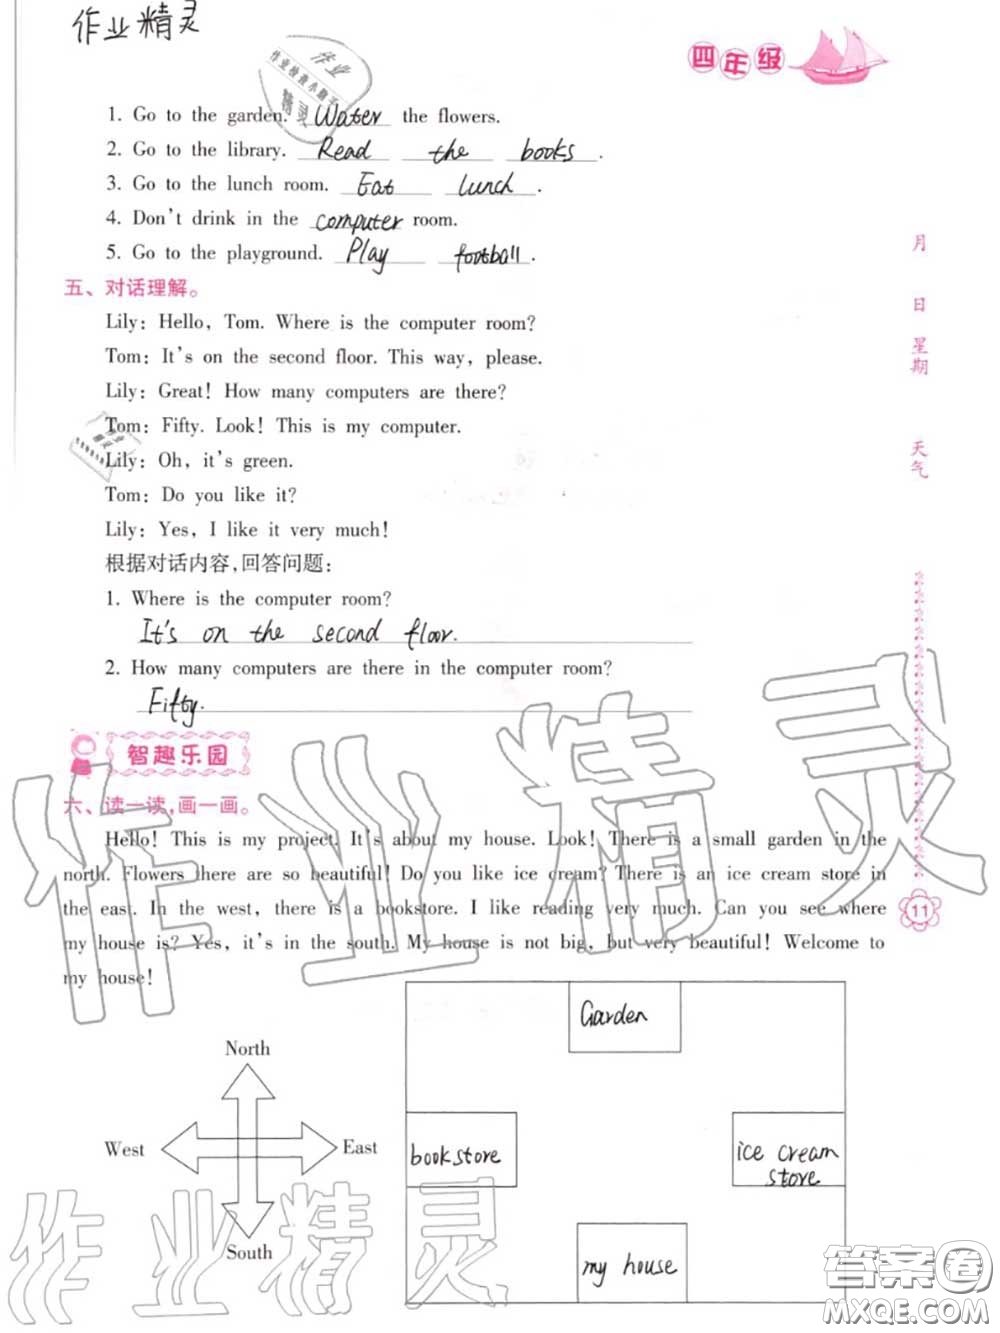 作业精灵
作业
作业检查小助手
精灵
四年级
1. Go to the garden. Water the flowers.
2. Go to the library. Read the books.
3. Go to the lunch room. Eat lunch.
4. Don't drink in the computer room.
5. Go to the playground. Play football.
五、对话理解。
Lily: Hello, Tom. Where is the computer room?
Tom: It's on the second floor. This way, please.
Lily: Great! How many computers are there?
Tom: Fifty. Look! This is my computer.
Lily: Oh, it's green.
Tom: Do you like it?
Lily: Yes, I like it very much!
根据对话内容,回答问题:
1. Where is the computer room?
It's on the second floor.
2. How many computers are there in the computer room?
Fifty.
智趣乐园
六、读一读,画一画。
Hello! This is my project. It's about my house. Look! There is a small garden in the
north. Flowers there are so beautiful! Do you like ice cream? There is an ice cream store in
the east. In the west, there is a bookstore. I like reading very much. Can you see where
my house is? Yes, it's in the south. My house is not big, but very beautiful! Welcome to
my house!
月
日
星期
天气
11
North
West
East
South
Garden
bookstore
ice cream
store
my house
作业精灵
作业精灵
答案圈
MXQE.COM